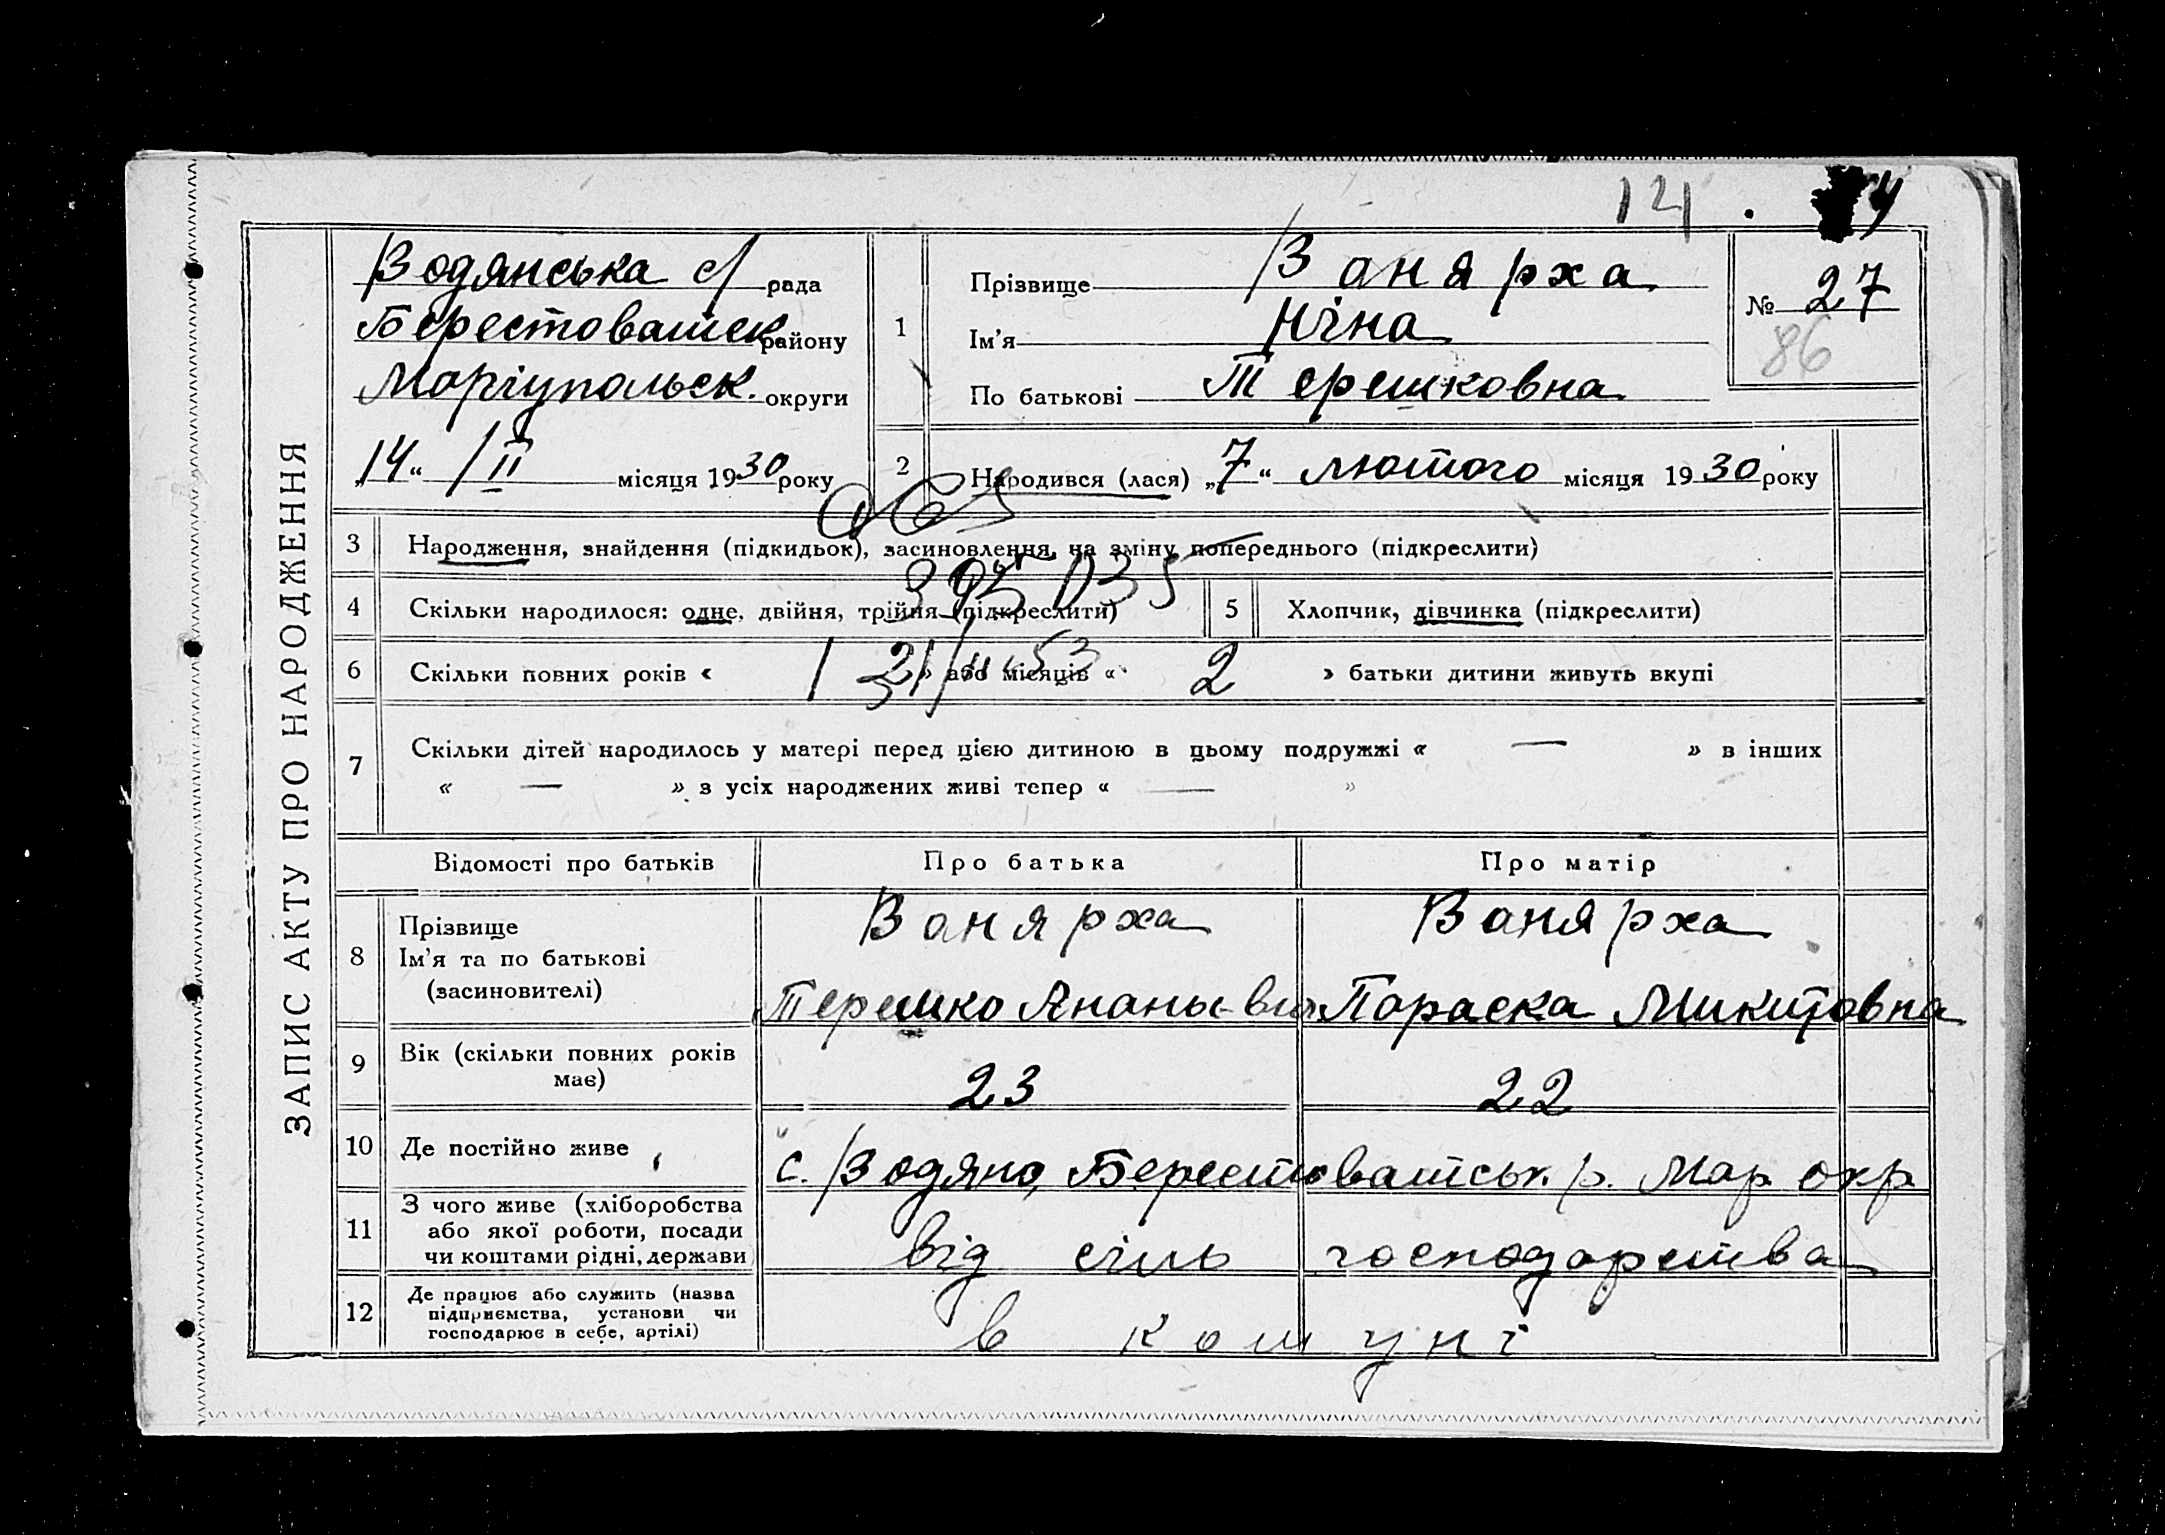 14 .
ЗАПИС АКТУ ПРО НАРОДЖЕННЯ
Водянська с/ рада
Берестоватск району
Маріупольск. округи
„14“ /II місяця 1930 року
1
Прізвище Ванярха
Ім'я Ніна
По батькові Терешковна
№ 27
86
2 Народився (лася) „7“ лютого місяця 1930 року
3 Народження, знайдення (підкидьок), засиновлення, на зміну попереднього (підкреслити)
4 Скільки народилося: одне, двійня, трійня (підкреслити)
5 Хлопчик, дівчинка (підкреслити)
6 Скільки повних років « 2 » або місяців « 2 » батьки дитини живуть вкупі
7 Скільки дітей народилось у матері перед цією дитиною в цьому подружжі « — » в інших
« — » з усіх народжених живі тепер « — »
Відомості про батьків Про батька Про матір
8 Прізвище
Ім'я та по батькові
(засиновителі)
Ванярха Ванярха
Терешко Параска Микитовна
9 Вік (скільки повних років
має)
23 22
10 Де постійно живе
с. Водяно, Берестоватськ. р. Мар. окр.
11 З чого живе (хліборобства
або якої роботи, посади
чи коштами рідні, держави
від сіль господарства
12 Де працює або служить (назва
підприємства, установи чи
господарює в себе, артілі)
в комуні